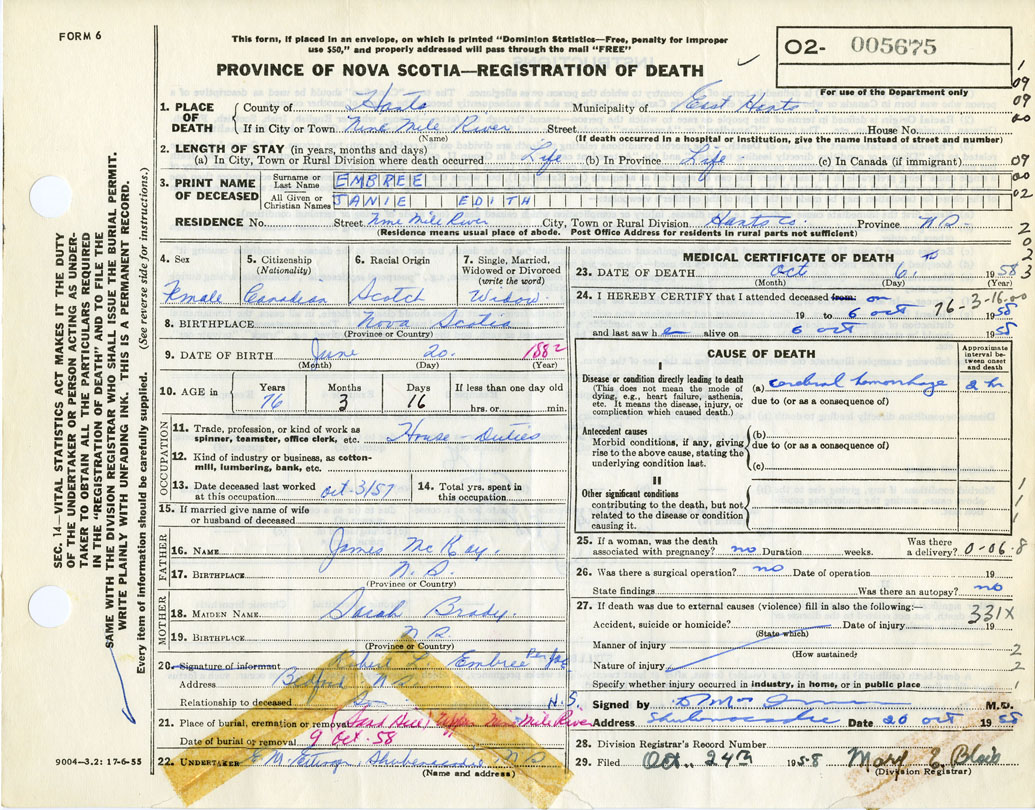 FORM 6
This form, if placed in an envelope, on which is printed “Dominion Statistics—Free, penalty for improper
use $50,” and properly addressed will pass through the mail “FREE”
O2- 005675
For use of the Department only
PROVINCE OF NOVA SCOTIA—REGISTRATION OF DEATH
1. PLACE OF DEATH
County of Hants Municipality of East Hants
If in City or Town Nine Mile River Street House No.
(Name) (If death occurred in a hospital or institution, give the name instead of street and number)
2. LENGTH OF STAY (in years, months and days)
(a) In City, Town or Rural Division where death occurred Life (b) In Province Life (c) In Canada (if immigrant)
3. PRINT NAME OF DECEASED
Surname or Last Name EMBREE
All Given or Christian Names JANIE EDITH
RESIDENCE No. Street Nine Mile River City, Town or Rural Division Hants Co. Province N.S.
(Residence means usual place of abode. Post Office Address for residents in rural parts not sufficient)
1
09
09
00
09
00
02
2
0
2
3
SEC. 14—VITAL STATISTICS ACT MAKES IT THE DUTY
OF THE UNDERTAKER OR PERSON ACTING AS UNDER-
TAKER TO OBTAIN ALL THE PARTICULARS REQUIRED
IN THE “REGISTRATION OF DEATH” AND TO FILE THE
SAME WITH THE DIVISION REGISTRAR WHO SHALL ISSUE THE BURIAL PERMIT.
WRITE PLAINLY WITH UNFADING INK. THIS IS A PERMANENT RECORD.
Every item of information should be carefully supplied. (See reverse side for instructions.)
4. Sex
Female
5. Citizenship
(Nationality)
Canadian
6. Racial Origin
Scotch
7. Single, Married,
Widowed or Divorced
(write the word)
Widow.
8. BIRTHPLACE Nova Scotia
(Province or Country)
9. DATE OF BIRTH June 20. 1882
(Month) (Day) (Year)
10. AGE in
Years
76
Months
3
Days
16
If less than one day old
hrs. or min.
OCCUPATION
11. Trade, profession, or kind of work as
spinner, teamster, office clerk, etc. House-Duties
12. Kind of industry or business, as cotton-
mill, lumbering, bank, etc.
13. Date deceased last worked
at this occupation Oct. 3/57
14. Total yrs. spent in
this occupation
15. If married give name of wife
or husband of deceased
FATHER
16. NAME James McKay.
17. BIRTHPLACE N.S.
(Province or Country)
MOTHER
18. MAIDEN NAME Sarah Brady.
19. BIRTHPLACE N.S.
(Province or Country)
20. Signature of informant Robert L. Embree
Address Bedford N.S.
Relationship to deceased Son
21. Place of burial, cremation or removal Upper Nine Mile River N.S.
Date of burial or removal 9 Oct. 58
22. UNDERTAKER Shubenacadie, N.S.
(Name and address)
9004—3.2: 17-6-55
MEDICAL CERTIFICATE OF DEATH
23. DATE OF DEATH Oct 6th 1958
(Month) (Day) (Year)
24. I HEREBY CERTIFY that I attended deceased from: on
76-3-16-00
19 to 6 Oct 1958
and last saw her alive on 6 oct 1958
CAUSE OF DEATH
Approximate
interval be-
tween onset
and death
I
Disease or condition directly leading to death
(This does not mean the mode of
dying, e.g., heart failure, asthenia,
etc. It means the disease, injury, or
complication which caused death.)
(a) cerebral hemorrhage 2 hr
due to (or as a consequence of)
Antecedent causes
Morbid conditions, if any, giving
rise to the above cause, stating the
underlying condition last.
(b)
due to (or as a consequence of)
(c)
II
Other significant conditions
contributing to the death, but not
related to the disease or condition
causing it.
1
1
1
25. If a woman, was the death
associated with pregnancy? no Duration weeks. Was there
a delivery? 0-06-8
26. Was there a surgical operation? no Date of operation 19
State findings Was there an autopsy? no
27. If death was due to external causes (violence) fill in also the following:—
331X
Accident, suicide or homicide? Date of injury 19
(State which)
Manner of injury 2
(How sustained)
Nature of injury 2
Specify whether injury occurred in industry, in home, or in public place 1
Signed by M.D.
Address Shubenacadie Date 20 oct 1958
28. Division Registrar's Record Number
29. Filed Oct. 24th 1958 Mary E. Blois
(Division Registrar)